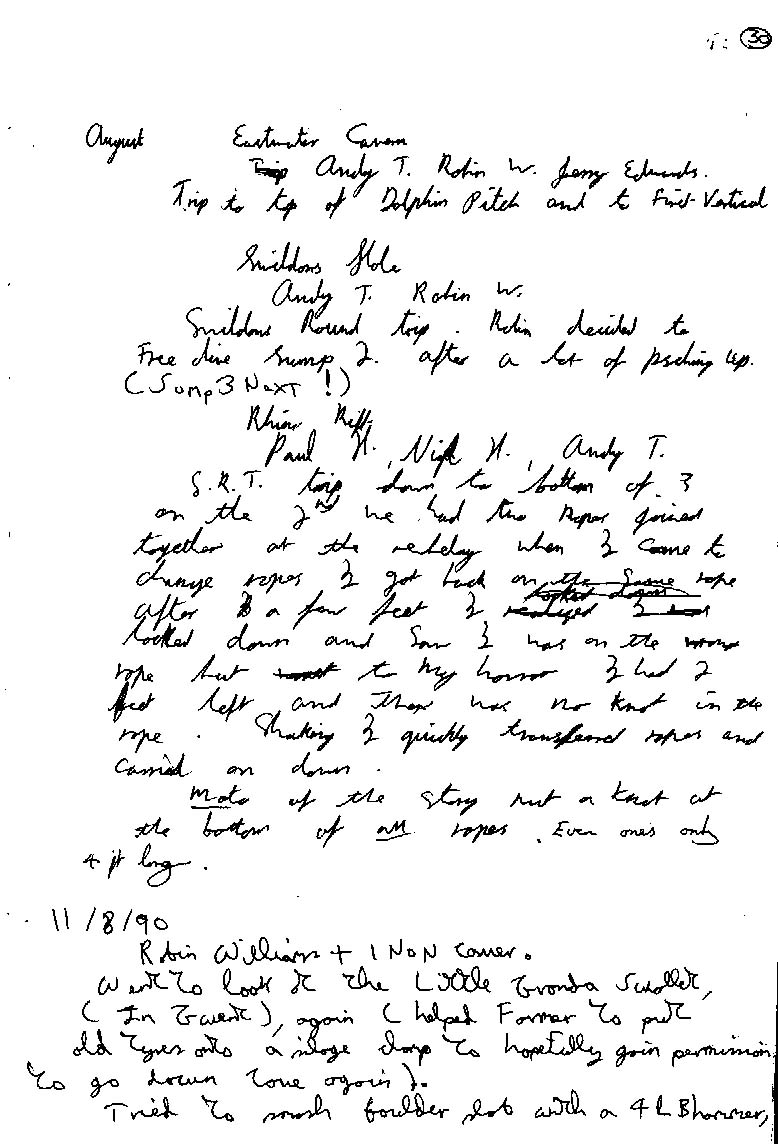 30
August Eastwater Cavern
Trip Andy T. Robin W. Jerry Edwards.
Trip to top of Dolphin Pitch and to First Vertical
Swildons Hole
Andy T. Robin W.
Swildons Round trip. Robin decided to
Free dive Sump 2. after a lot of psching up.
(Sump 3 Next!)
Rhino Rift
Paul H., Nigel H., Andy T.
S.R.T. trip down to bottom of 3
on the 2nd we had two ropes joined
together at the rebelay when I came to
change ropes I got back on the same rope
looked down
after a few feet I realized I was
looked down and Saw I was on the wrong
rope but to My horror I had 2
feet left and Ther was no Knot in the
rope. Shaking I quickly transfered ropes and
carried on down.
Moto of the Story put a Knot at
the bottom of all ropes. Even ones only
4 ft long.
11/8/90
Robin Williams + 1 Non Caver.
Went to look at the Little Swallet,
(In Gwent), again (helped Farmer to put
old tyres onto a silage clamp to hopefully gain permission
to go down Cave again).
Tried to smash boulder slab with a 4 LB hammer,